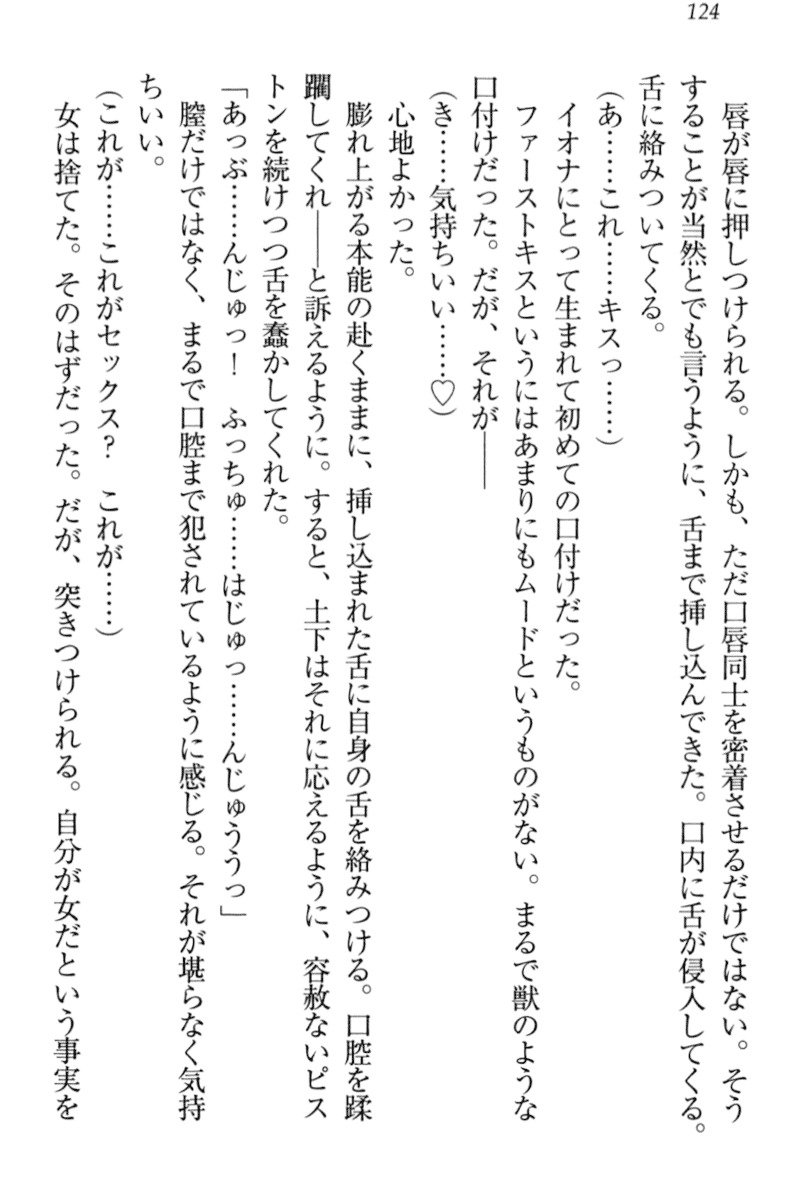 124
唇が唇に押しつけられる。しかも、ただ口唇同士を密着させるだけではない。そう
することが当然とでも言うように、舌まで挿し込んできた。口内に舌が侵入してくる。
舌に絡みついてくる。
(あ……これ……キスっ……)
イオナにとって生まれて初めての口付けだった。
ファーストキスというにはあまりにもムードというものがない。まるで獣のような
口付けだった。だが、それが――
(き……気持ちいい……♡)
心地よかった。
膨れ上がる本能の赴くままに、挿し込まれた舌に自身の舌を絡みつける。口腔を蹂
躙してくれ――と訴えるように。すると、土下はそれに応えるように、容赦ないピス
トンを続けつつ舌を蠢かしてくれた。
「あっぷ……んじゅっ！　ふっちゅ……はじゅっ……んじゅううっ」
膣だけではなく、まるで口腔まで犯されているように感じる。それが堪らなく気持
ちいい。
(これが……これがセックス？　これが……)
女は捨てた。そのはずだった。だが、突きつけられる。自分が女だという事実を